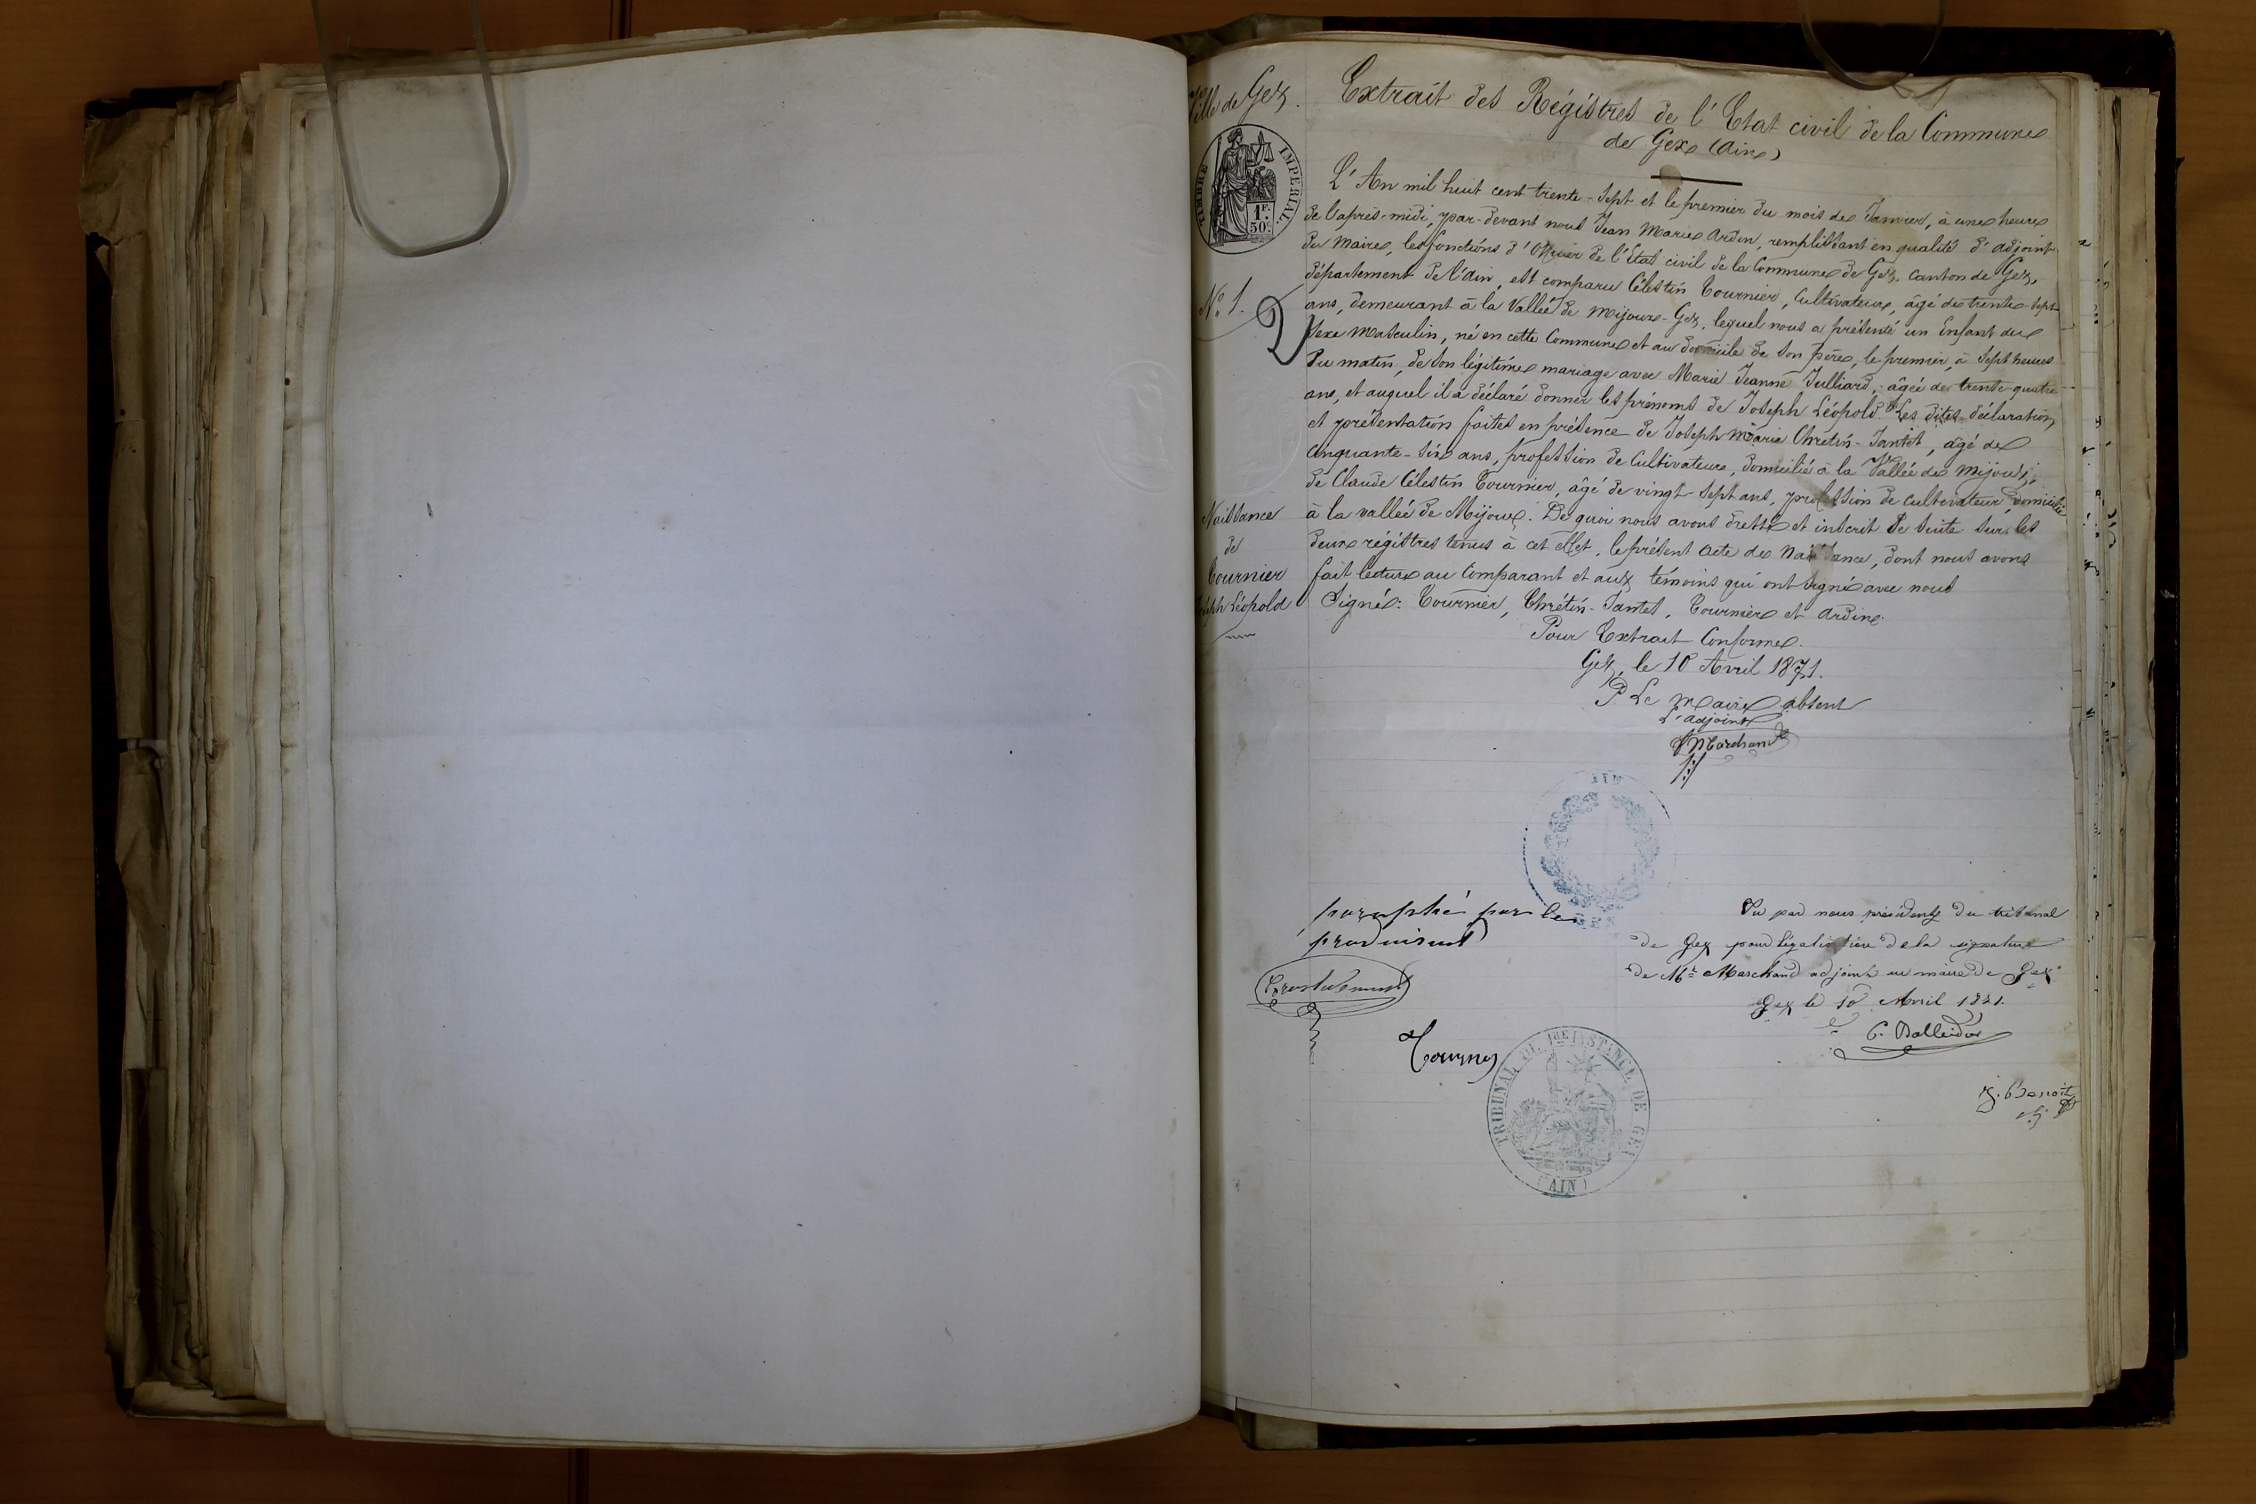 Ville de Gex.
TIMBRE IMPERIAL
1F.
50c.
Nº 1.
Naissance
de
Tournier
Joseph Léopold
Extrait des Régistres de l'Etat civil de la Commune
de Gex (Ain)
L'An mil huit cent trente-sept et le premier du mois de Janvier, à une heure
de l'après-midi, par-devant nous Jean Marie Ardin, remplissant en qualité d'adjoint
du Maire, les fonctions d'Officier de l'Etat civil de la Commune de Gex, canton de Gex,
département de l'Ain, est comparu Célestin Tournier, Cultivateur, âgé de trente-sept
ans, demeurant à la Vallée de Mijoux-Gex, lequel nous a présenté un Enfant du
sexe Masculin, né en cette Commune et au domicile de son père, le premier, à sept heures
du matin, de son légitime mariage avec Marie Jeanne Julliard, âgée de trente-quatre
ans, et auquel il a déclaré donner les prénoms de Joseph Léopold. Les dites déclaration
et présentation faites en présence de Joseph Marie Chrétin-Jantet, âgé de
cinquante-six ans, profession de Cultivateur, domicilié à la Vallée de Mijoux,
de Claude Célestin Tournier, âgé de vingt-sept ans, profession de cultivateur, domicilié
à la vallée de Mijoux. De quoi nous avons dressé et inscrit de suite sur les
deux régistres tenus à cet effet, le présent acte de Naissance, dont nous avons
fait lecture au Comparant et aux témoins qui ont signé avec nous
Signé: Tournier, Chrétin-Jantet, Tournier et Ardin.
Pour Extrait Conforme.
Gex, le 10 Avril 1871.
Pr Le Maire absent
L'adjoint
Marchand
AIN
paraphé par le
produisant
Vu par nous président du tribunal
de Gex pour légalisation de la signature
de Mr Marchand adjoint au maire de Gex
Gex le 10 Avril 1871.
Tournier
TRIBUNAL DE 1RE INSTANCE DE GEX
(AIN)
J. Benoit